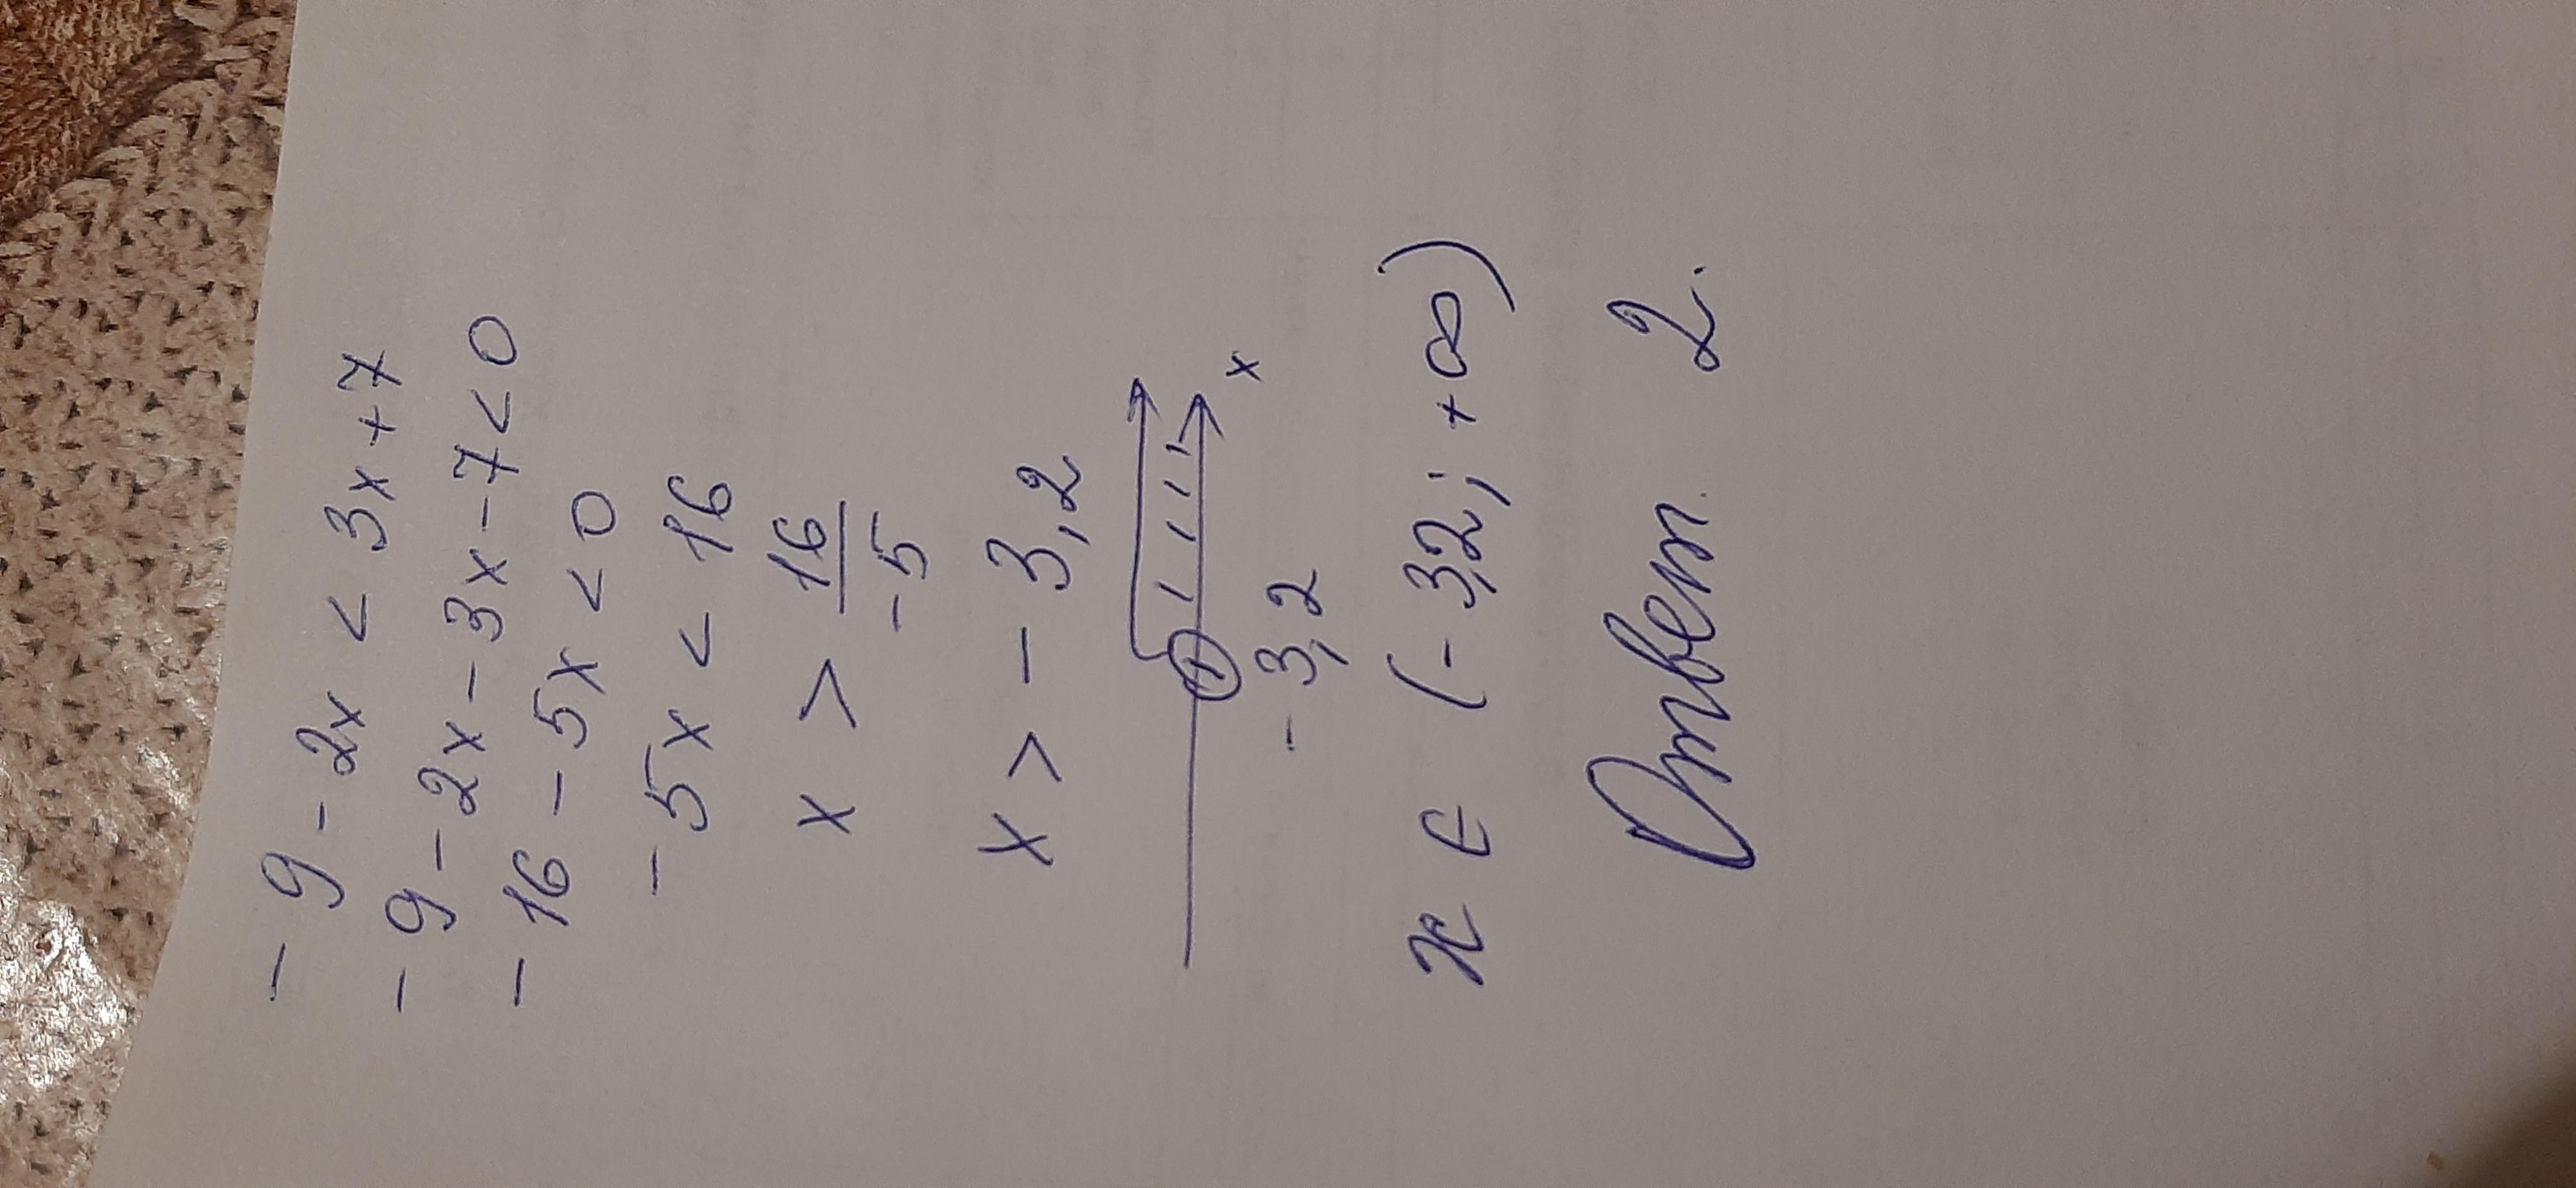 -9-2x < 3x+7
-9-2x-3x-7<0
-16-5x<0
-5x < 16
x > 16/-5
x > -3,2
x
-3,2
x ∈ (-3,2; +∞)
Ответ 2.